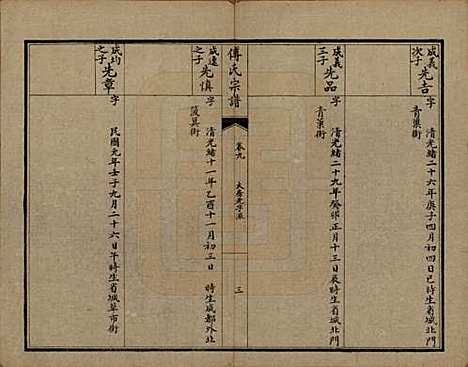 成義次子 先吉 字
清光緒二十六年庚子四月初四日巳時生省城北門
青果街
成義三子 先品 字
清光緒二十九年癸卯正月十三日辰時生省城北門
青果街
傅氏宗譜
卷九
三
成逵之子 先慎 字
清光緒十一年乙酉十一月初三日 時生成都外北
街
成均之子 先章 字
民國元年壬子九月二十六日午時生省城草市街